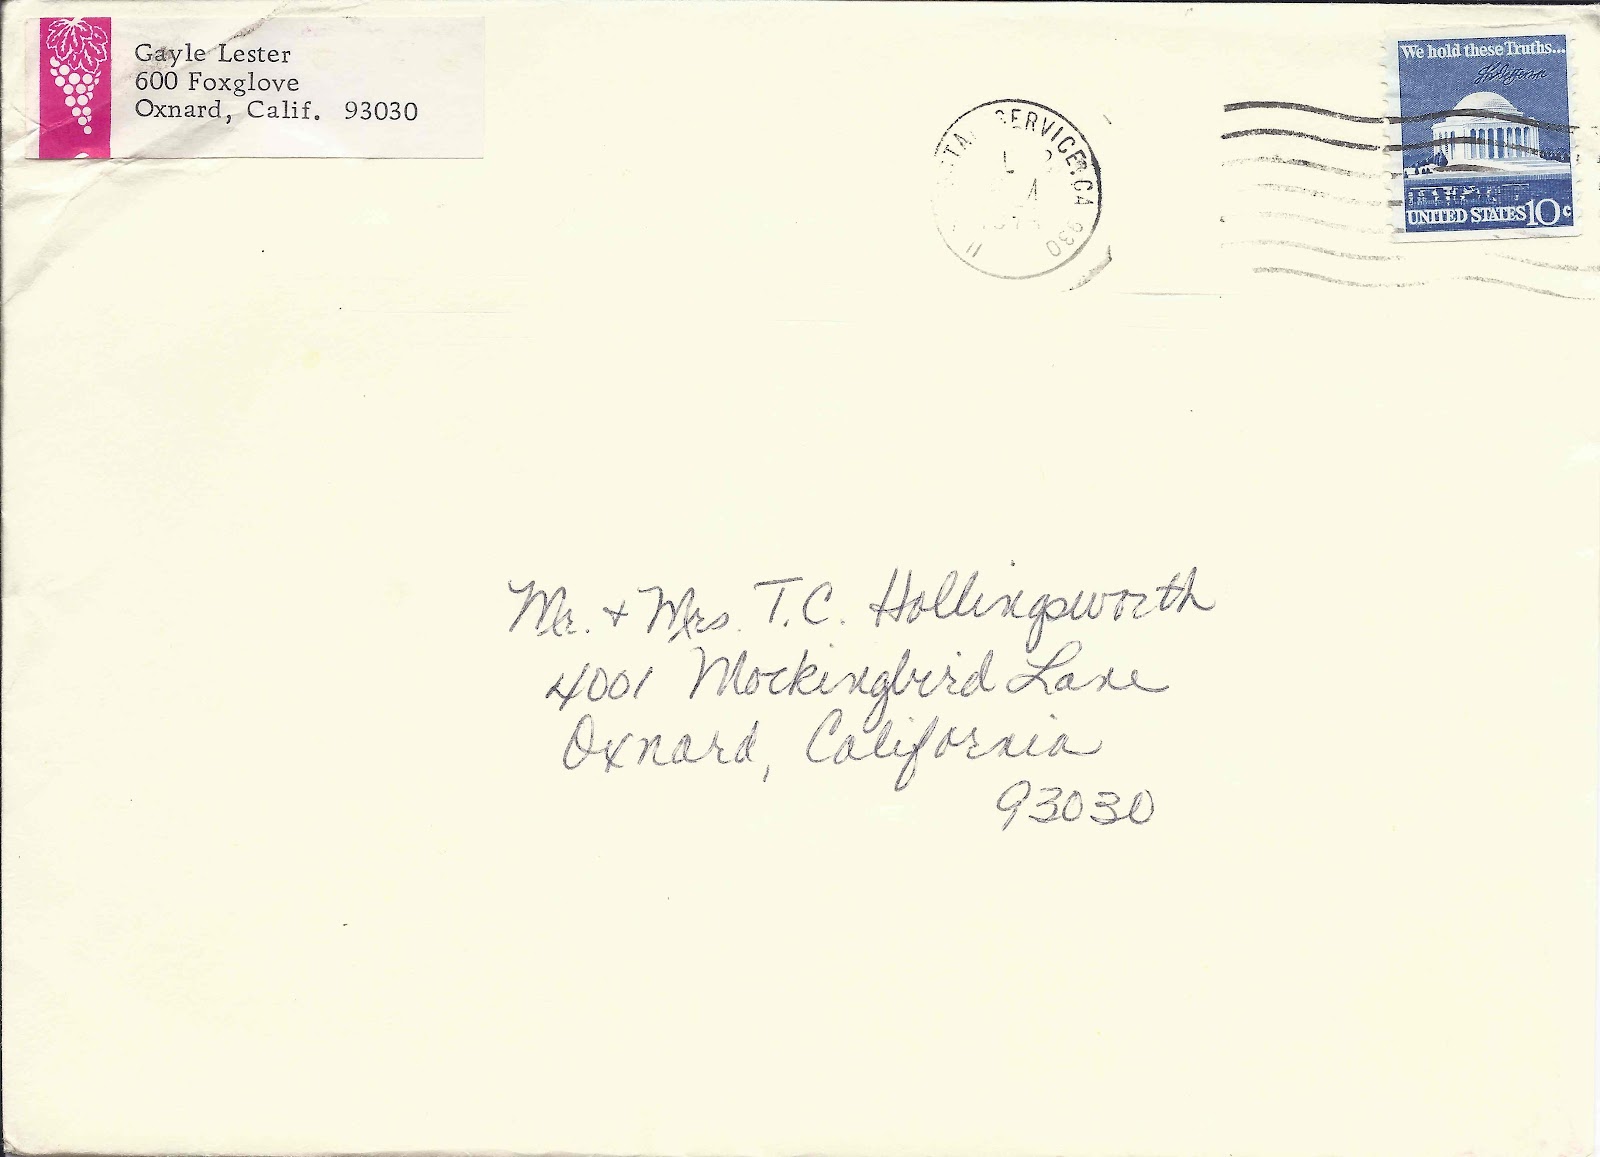 Gayle Lester
600 Foxglove
Oxnard, Calif. 93030
We hold these Truths...
UNITED STATES 10c
SERVICE, CA 930
Mr. + Mrs. T.C. Hollingsworth
4001 Mockingbird Lane
Oxnard, California
93030